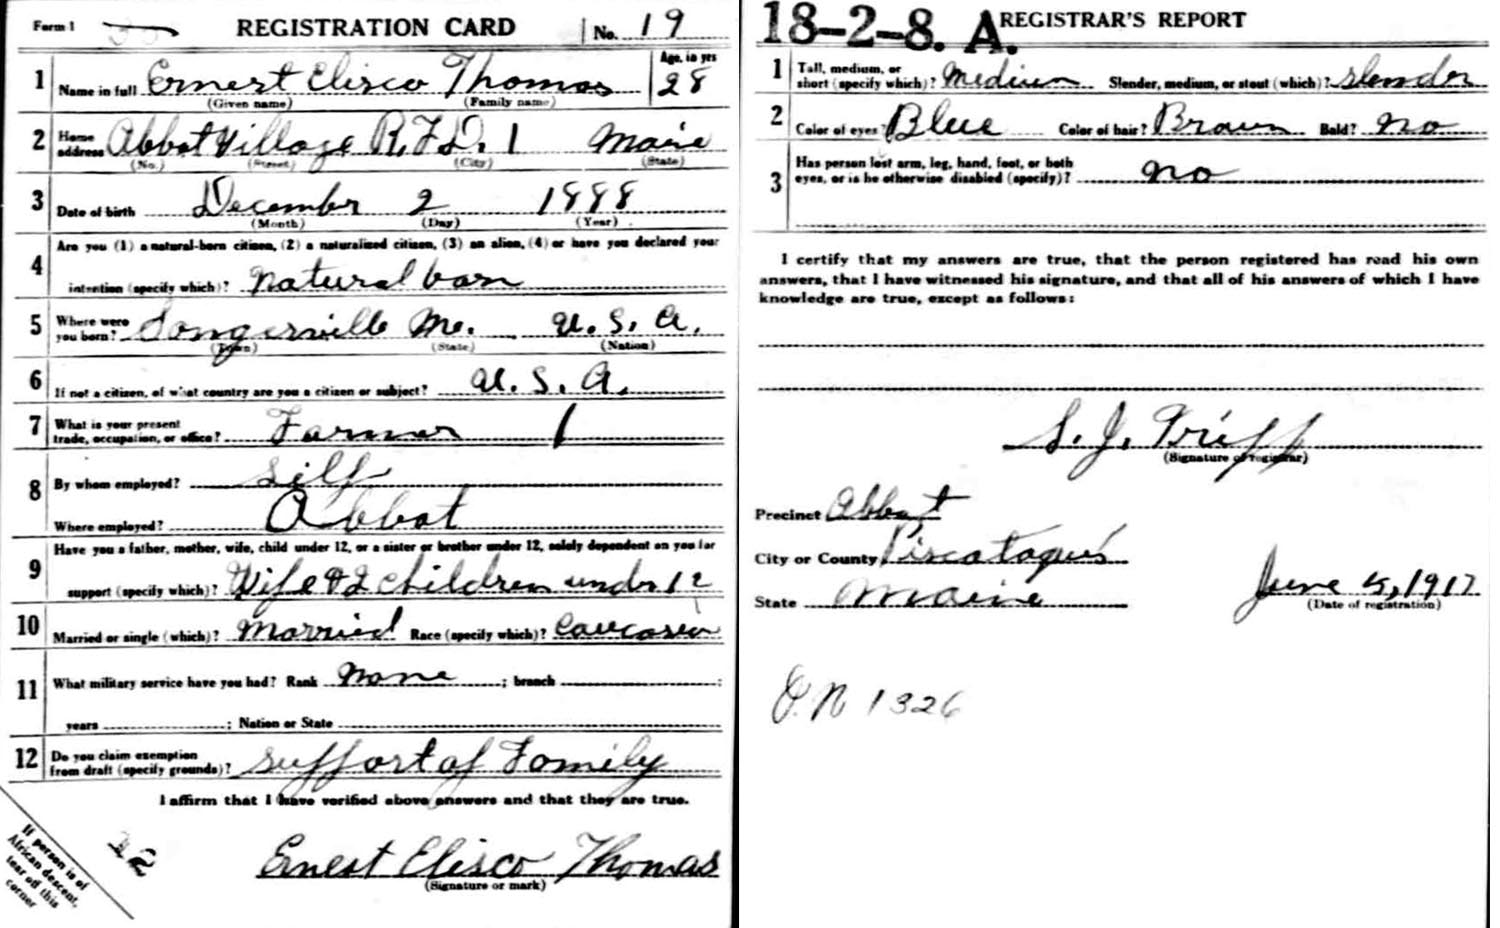 Form 1
REGISTRATION CARD
No. 19
Age, in yrs
1 Name in full Ernest Elisco Thomas 28
(Given name) (Family name)
2 Home address Abbot Village R.F.D. 1 Maine
(No.) (Street) (City) (State)
3 Date of birth December 2 1888
(Month) (Day) (Year)
Are you (1) a natural-born citizen, (2) a naturalized citizen, (3) an alien, (4) or have you declared your
4 intention (specify which)? Natural born
5 Where were you born? Sangerville Me. U.S.A.
(Town) (State) (Nation)
6 If not a citizen, of what country are you a citizen or subject? U.S.A.
7 What is your present trade, occupation, or office? Farmer 1
8 By whom employed? Self
Where employed? Abbot
Have you a father, mother, wife, child under 12, or a sister or brother under 12, solely dependent on you for
9 support (specify which)? Wife & 2 children under 12
10 Married or single (which)? Married Race (specify which)? Caucasian
11 What military service have you had? Rank None ; branch ;
years ; Nation or State
12 Do you claim exemption from draft (specify grounds)? Support of Family
I affirm that I have verified above answers and that they are true.
Ernest Elisco Thomas
(Signature or mark)
If person is of
African descent,
tear off this
corner
12
18-2-8. A.
REGISTRAR'S REPORT
1 Tall, medium, or short (specify which)? Medium Slender, medium, or stout (which)? slender
2 Color of eyes? Blue Color of hair? Brown Bald? No
3 Has person lost arm, leg, hand, foot, or both eyes, or is he otherwise disabled (specify)? No
I certify that my answers are true, that the person registered has read his own
answers, that I have witnessed his signature, and that all of his answers of which I have
knowledge are true, except as follows:
S. J.
(Signature of registrar)
Precinct Abbot
City or County Piscataquis
State Maine
June 5, 1917
(Date of registration)
O.N 1326